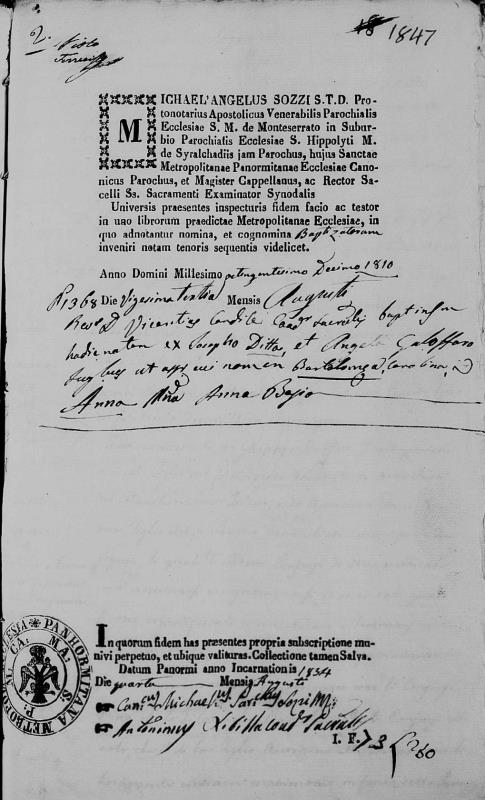 2.
Visto
1847
MICHAEL' ANGELUS SOZZI S. T. D. Pro-
tonotarius Apostolicus Venerabilis Parochialis
Ecclesiae S. M. de Monteserrato in Subur-
bio Parochialis Ecclesiae S. Hippolyti M.
de Syralchadiis jam Parochus, hujus Sanctae
Metropolitanae Panormitanae Ecclesiae Cano-
nicus Parochus, et Magister Cappellanus, ac Rector Sa-
celli Ss. Sacramenti Examinator Synodalis
Universis praesentes inspecturis fidem facio ac testor
in uno librorum praedictae Metropolitanae Ecclesiae, in
quo adnotantur nomina, et cognomina Baptizatorum
inveniri notam tenoris sequentis videlicet.
Anno Domini Millesimo octingentesimo Decimo 1810
Die Vigesima tertia Mensis Augusti
Revs D. Vicentius Candila Baptm
hodie natam ex Josepho Ditta, et Angela Galoffaro
Jug: cui nomen Bartolomea, Carolina,
Anna Anna Bagio
In quorum fidem has praesentes propria subscriptione mu-
nivi perpetuo, et ubique valituras. Collectione tamen Salva.
Datum Panormi anno Incarnationis 1834
Die quarta Mensis Augusti
Canus Michael
Antoninus
I. F. 73
260
PANHORMITANA METROPO
CA: MA: S: P: